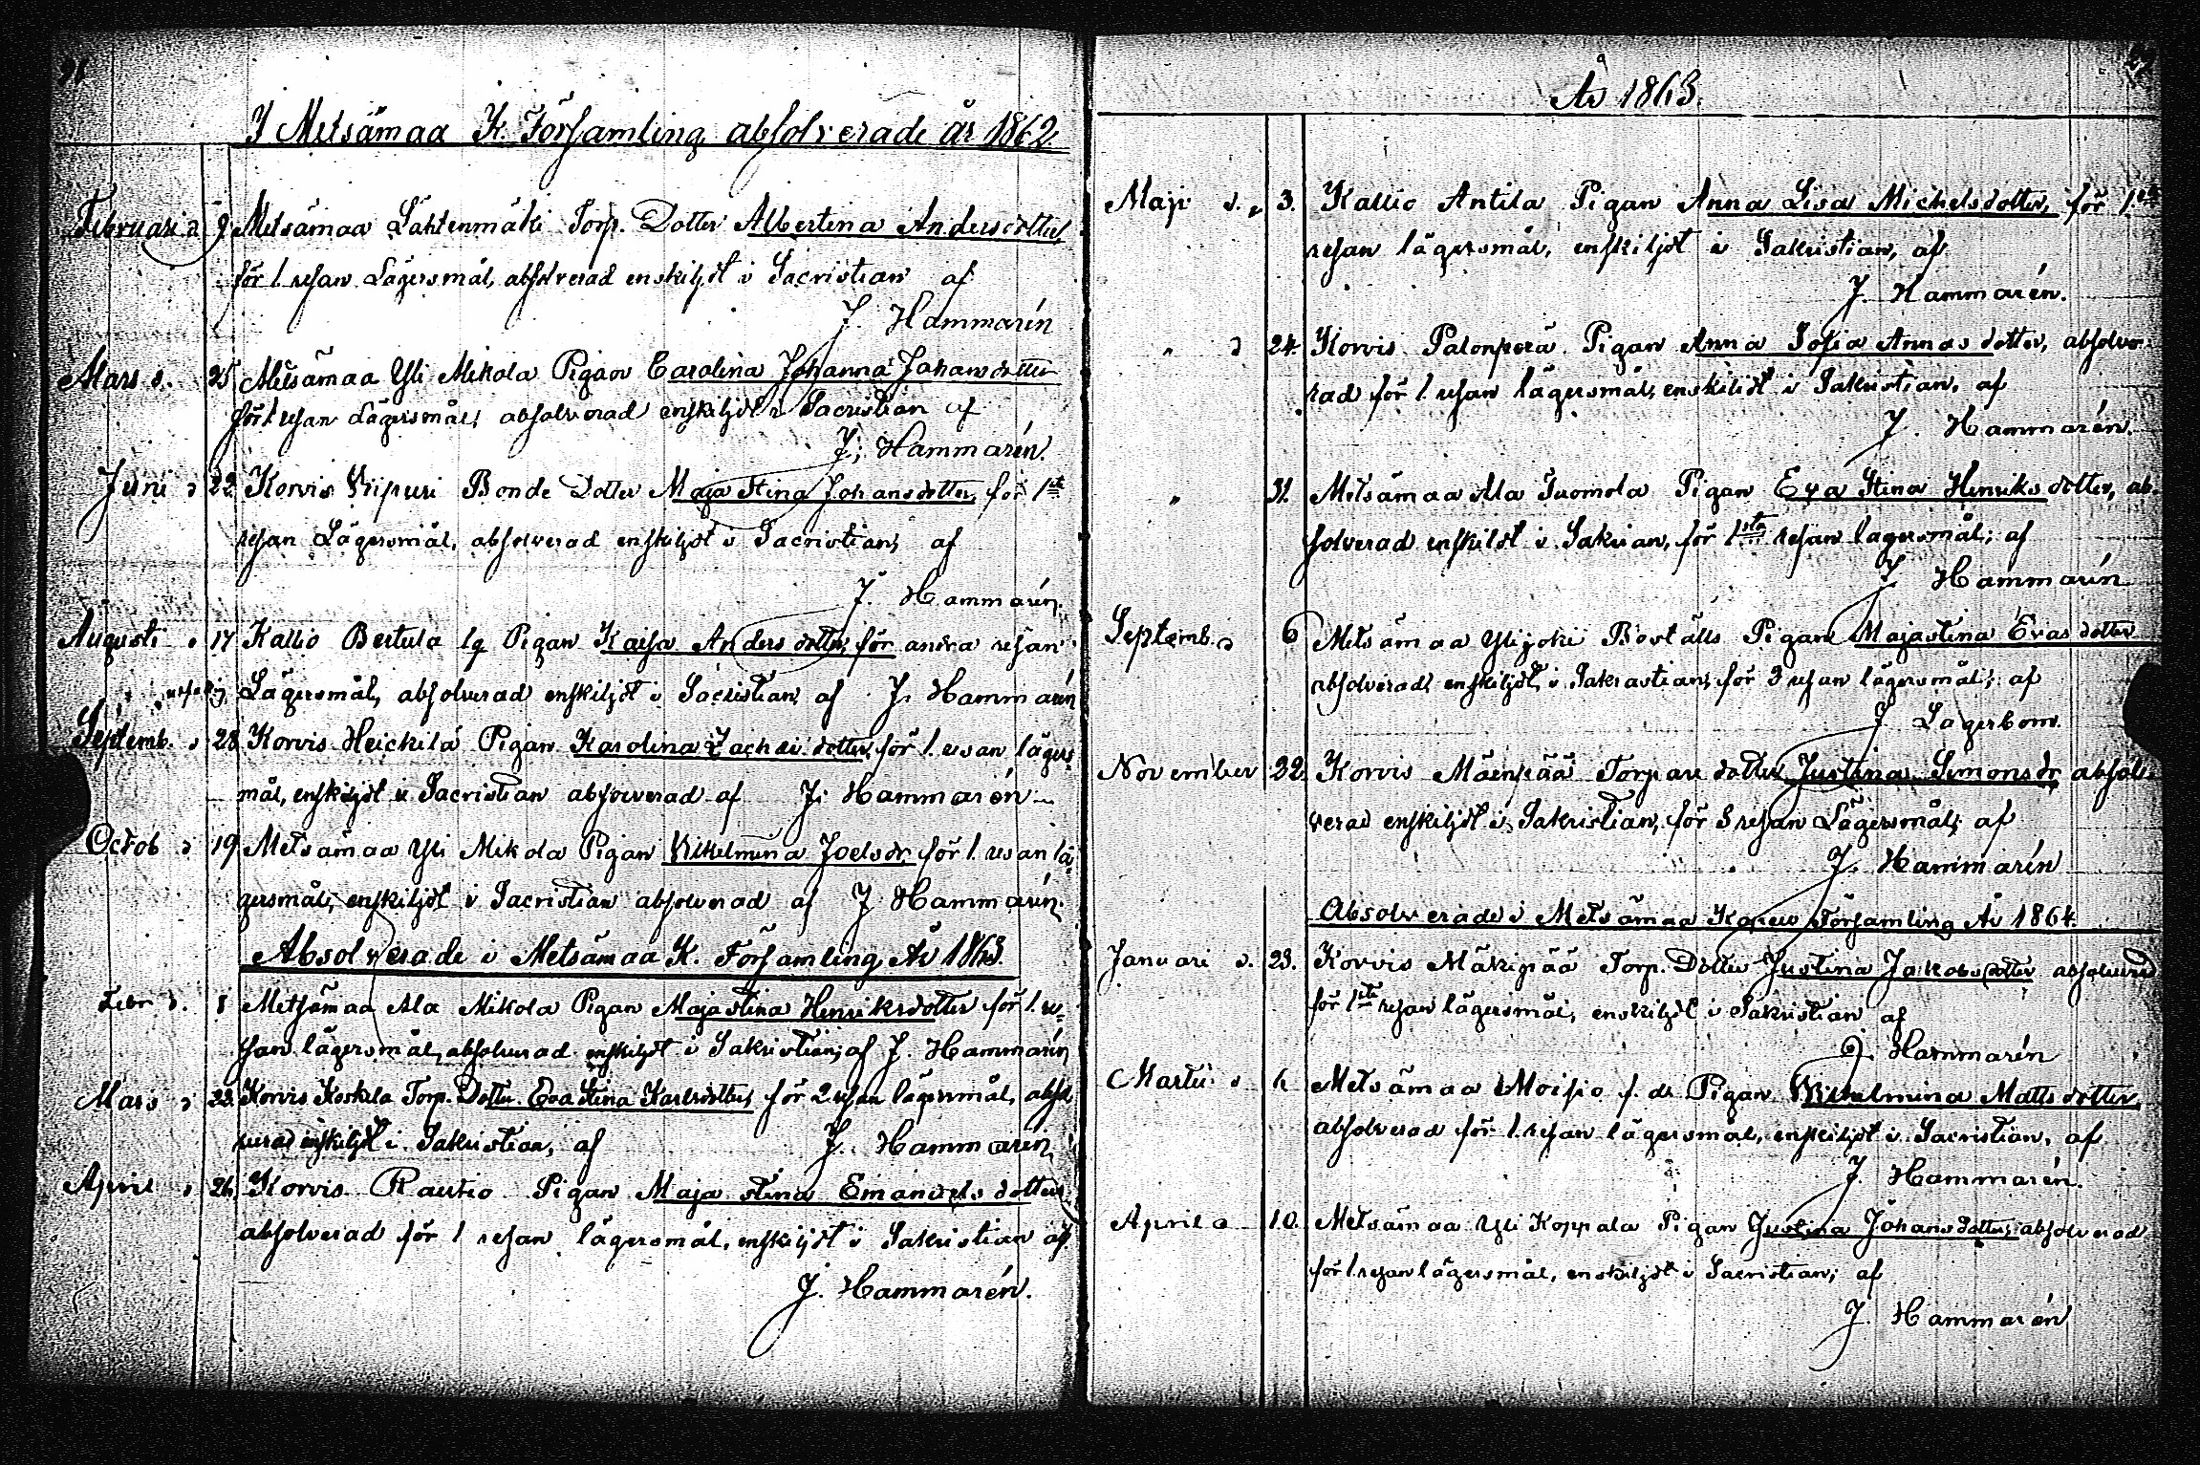 I Metsämaa K. Församling absolverade år 1862.
Februari d. 9 Metsämaa Lähtenmäki Torp. Dotter Albertina Andersdotter,
för 1. resan Lägersmål, absolverad enskiljdt i Sacristian af
J. Hammarén
Mars d. 25 Metsämaa Yli Mikola Pigan Carolina Johanna Johansdotter
för 1 resan Lägersmål, absolverad enskiljdt i Sacristian af
J. Hammarén.
Juni d 22 Korvis Vripuri Bonde Dotter Maja Stina Johansdotter, för 1sta
resan Lägersmål, absolverad enskiljdt i Sacristian, af
J. Hammarén.
Augusti d 17 Kallio Bertula Pigan Kaisa Andersdotter, för andra resan
Lägersmål, absolverad enskiljdt i Sacristian af J. Hammarén
Septemb. d 28 Korvis Heickilä Pigan Karolina Zachrisdotter, för 1. resan lägers-
mål, enskiljdt i Sacristian absolverad af J. Hammarén
Octob d 19 Metsämaa Yli Mikola Pigan Vilhelmina Joelsdr för 1. resan lä-
gersmål, enskiljdt i Sacristian absolverad af J Hammarén.
Absolverade i Metsämaa K. Församling År 1863.
Febr d. 8 Metsämaa Ala Mikola Pigan Majastina Henriksdotter för 1. re-
san lägersmål, absolverad enskiljdt i Sakristian, af J. Hammarén
Mars d 22. Korvis Koskela Torp. Dotter Eva Stina Karlsdotter, för 2 resan lägersmål, absol-
verad enskiljdt i Sakristian, af J. Hammarén,
April d 26. Korvis Rautio Pigan Maja Stina Emanuels dotter
absolverad för 1 resan lägersmål, enskiljdt i Sakristian af
J. Hammarén.
År 1863.
Maji d. 3. Kallio Antila Pigan Anna Lisa Michelsdotter, för 1sta
resan lägersmål, enskiljdt i Sakristian, af
J. Hammarén.
" d 24. Korvis Palonperä Pigan Anna Sofia Annasdotter, absolve-
rad för 1 resan lägersmål, enskildt i Sakristian, af
J. Hammarén.
" 31. Metsämaa Ala Tuomola Pigan Eva Stina Henriksdotter, ab-
solverad enskildt i Sakrian, för 1sta resan lagersmål; af
J Hammarén
Septemb. d 6 Metsämaa Ylijoki Boställs Pigan Majastina Evasdotter
absolverad, enskiljdt, i Sakrastian, för 3 resan lägersmål; af
J. Lagerbom.
November 22. Korvis Mäenpää Torpare dotter Justina Simonsdr absol-
verad enskiljdt i Sakristian, för 3 resan Lägersmål; af
J. Hammarén
Absolverade i Metsämaa Kapell Församling År 1864.
Januari d. 23. Korvis Mäkipää Torp. Dotter Justina Jakobsdotter absolverad
för 1sta resan lägersmål, enskiljdt i Sakristian af
J. Hammarén
Martii d Metsämaa Moisio f. d. Pigan Vilhelmina Mattsdotter,
absolverad för 1. resan lägersmål, enskiljdt i Sacristian, af
J. Hammarén.
April d 10. Metsämaa Yli Koppala Pigan Justina Johansdotter, absolverad
för 1 resan lägersmål, enskiljdt i Sacristian; af
J. Hammarén